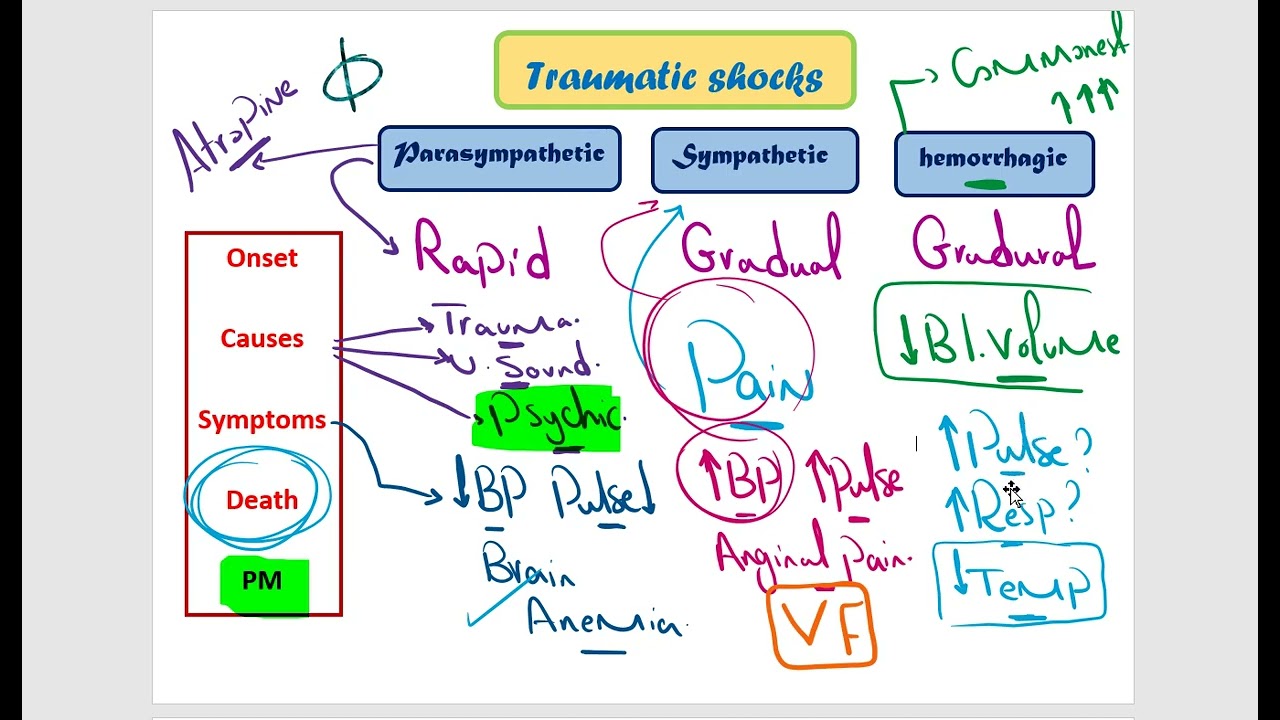 Traumatic shocks
Commonest
↑↑↑
Atropine
Parasympathetic Sympathetic hemorrhagic
Onset Rapid Gradual Gradural
Causes Trauma. Pain ↓Bl.Volume
Sound.
Psychic.
Symptoms ↓BP Pulse↓ ↑BP ↑Pulse ↑Pulse?
↑Resp?
Anginal Pain. ↓Temp
Death Brain VF
Anemia.
PM